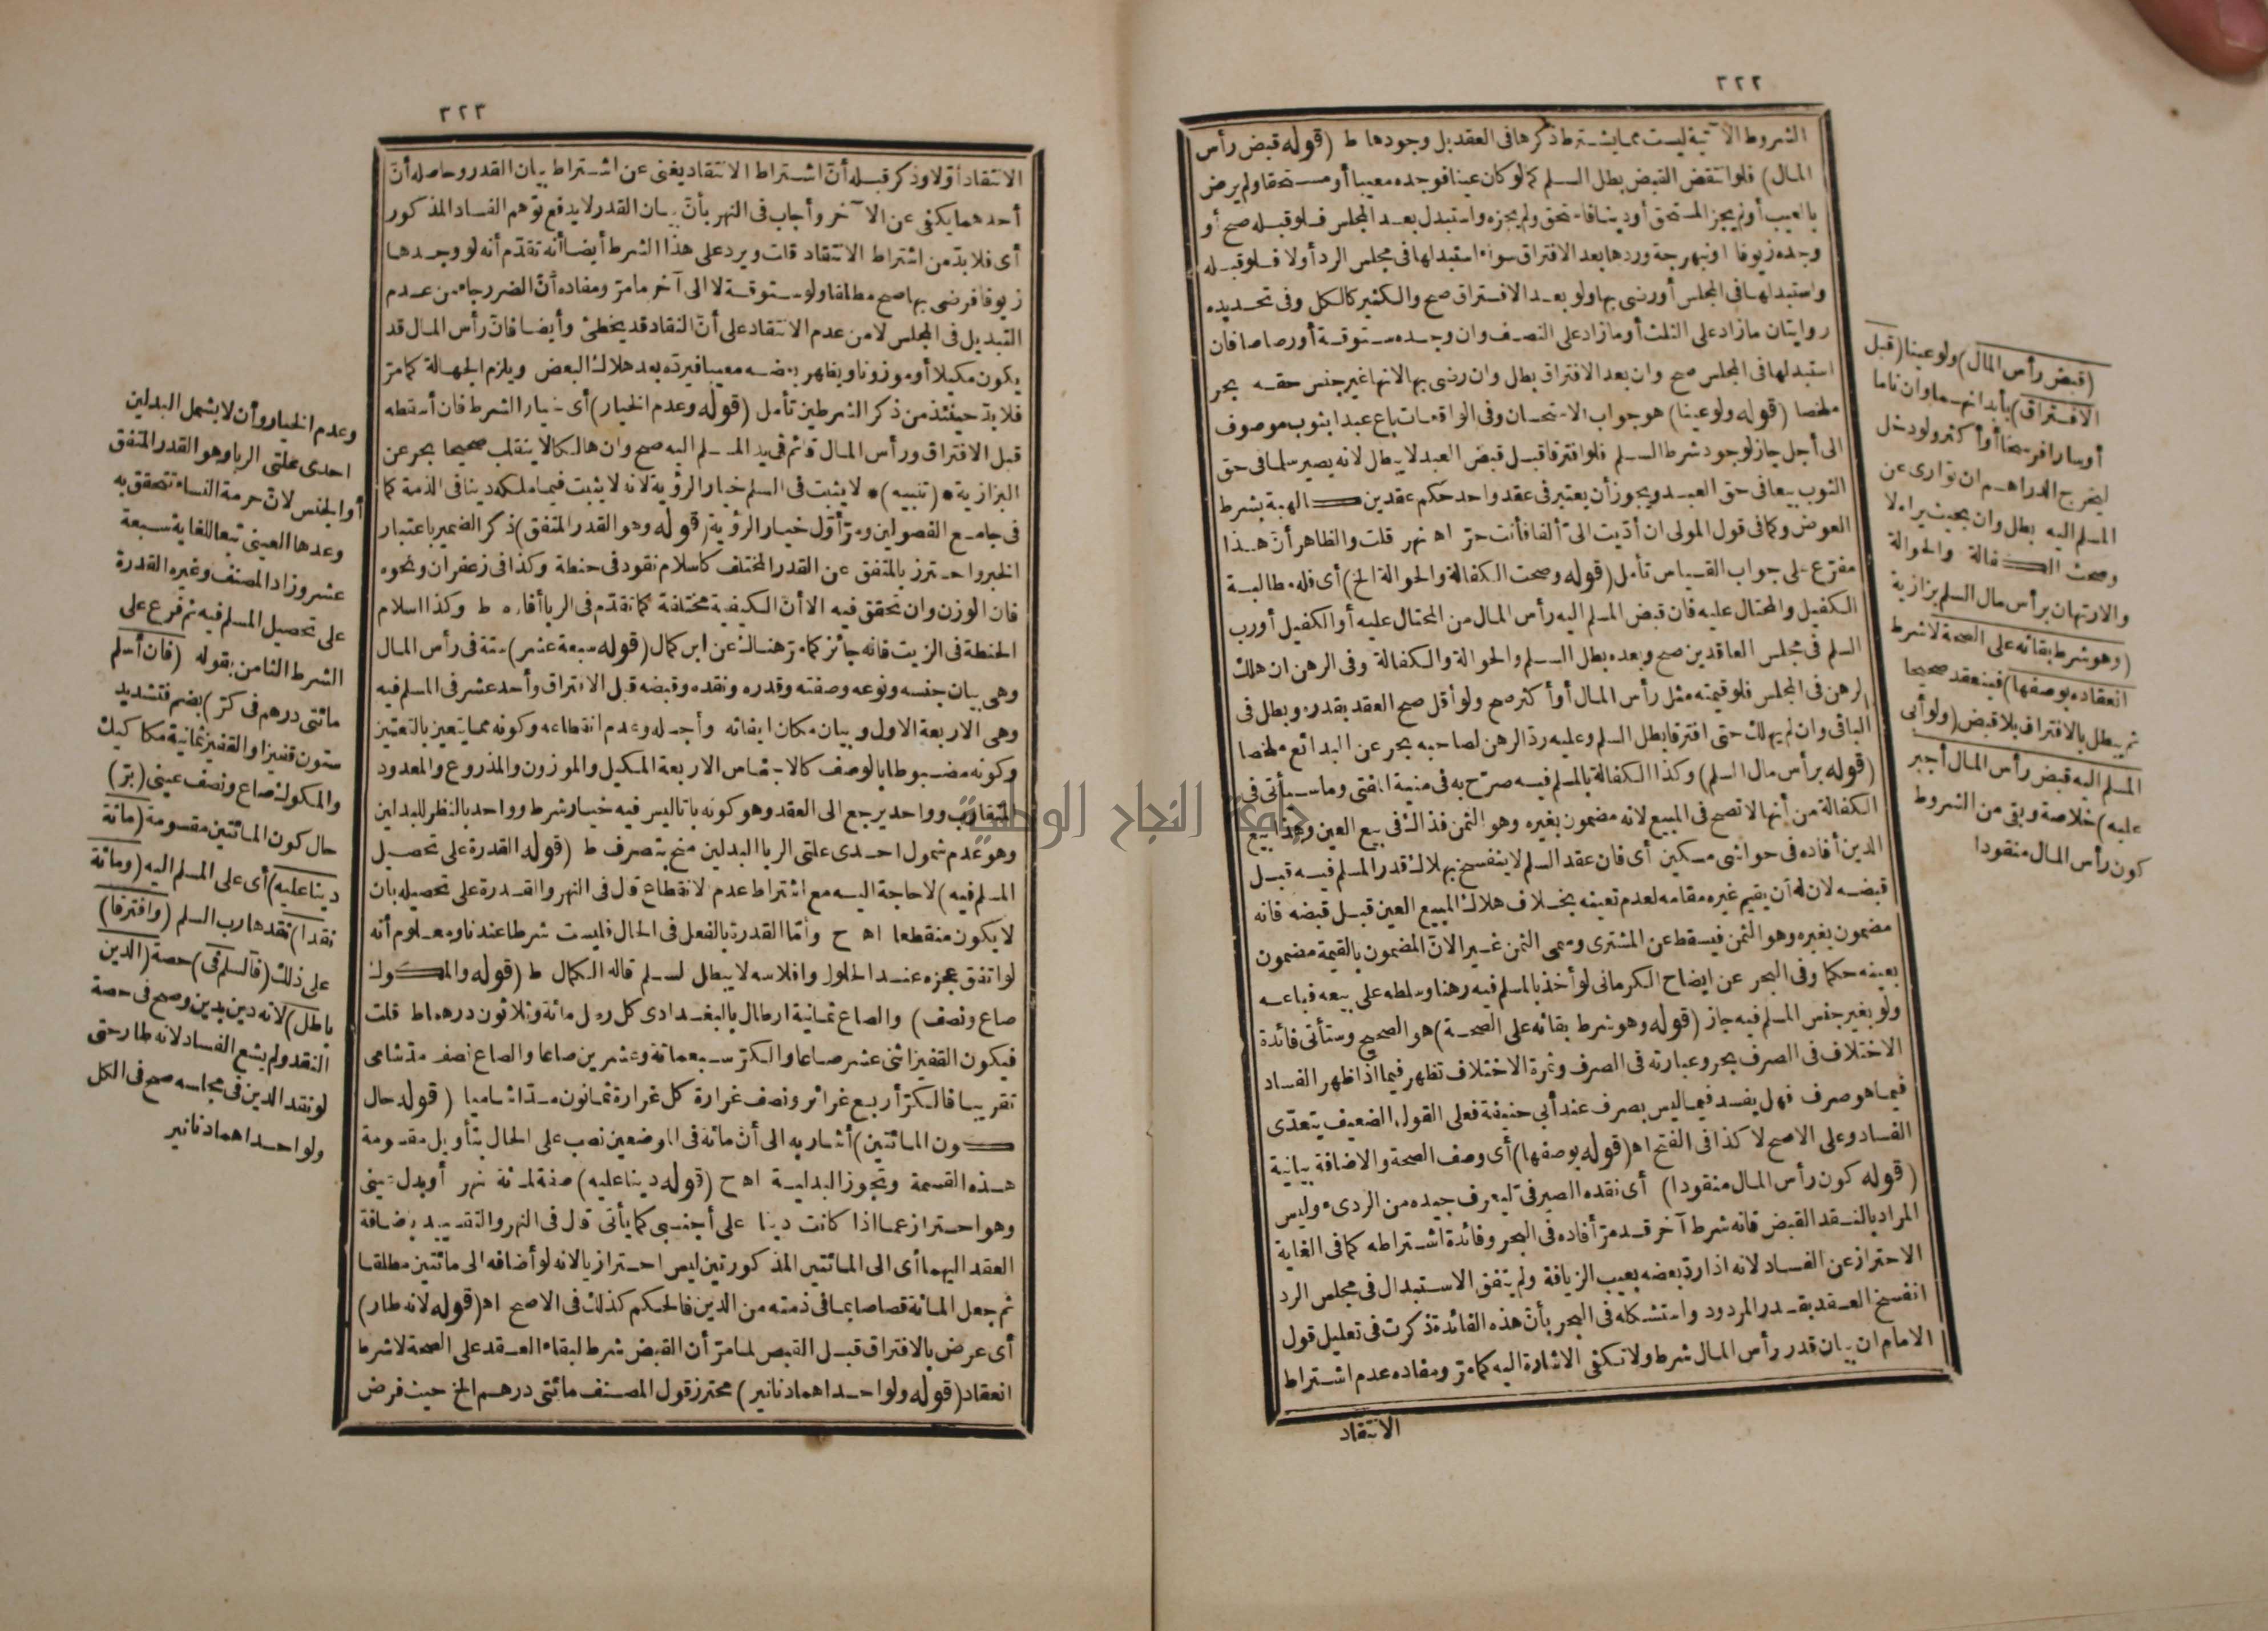 ٣٢٢
الشروط الآتية ليست مما يشترط ذكرها في العقد بل وجودها ط (قوله قبض رأس
المال) فلو انتقض القبض بطل السلم كما لو كان عينا فوجده معيبا أو مستحقا ولم يرض
بالعيب أو لم يجز المستحق أو دينا فاستحق ولم يجزه واستبدل بعد المجلس فلو قبله صح أو
وجده زيوفا أو نبهرجة وردها بعد الافتراق سواء استبدلها في مجلس الرد أو لا فلو قبله
واستبدلها في المجلس أو رضى بها ولو بعد الافتراق صح والكثير كالكل وفي تحديده
روايتان ما زاد على الثلث أو ما زاد على النصف وان وجده ستوقة أو رصاصا فان
استبدلها في المجلس صح وان بعد الافتراق بطل وان رضى بها لانها غير جنس حقه بحر
ملخصا (قوله ولو عينا) هو جواب الاستحسان وفي الواقعات باع عبدا بثوب موصوف
الى أجل جاز لوجود شرط السلم فلو افترقا قبل قبض العبد لا يبطل لانه يصير سلما في حق
الثوب بيعا في حق العبد ويجوز أن يعتبر في عقد واحد حكم عقدين كالهبة بشرط
العوض وكما في قول المولى ان أدّيت الىّ ألفا فأنت حرّ اه نهر قلت والظاهر أنّ هذا
مفرّع على جواب القياس تأمل (قوله وصحت الكفالة والحوالة الخ) أى فله مطالبة
الكفيل والمحتال عليه فان قبض المسلم اليه رأس المال من المحتال عليه أو الكفيل أو رب
السلم في مجلس العاقدين صح وبعده بطل السلم والحوالة والكفالة وفي الرهن ان هلك
الرهن في المجلس فلو قيمته مثل رأس المال أو أكثر صح ولو أقل صح العقد بقدره وبطل في
الباقي وان لم يهلك حتى افترقا بطل السلم وعليه ردّ الرهن لصاحبه بحر عن البدائع ملخصا
(قوله برأس مال السلم) وكذا الكفالة بالمسلم فيه صرّح به في منية المفتى وما سيأتى في
الكفالة من أنها لا تصح في المبيع لانه مضمون بغيره وهو الثمن فذالك في بيع العين وهذا بيع
الدين أفاده في حواشى مسكين أى فان عقد السلم لا ينفسخ بهلاك قدر المسلم فيه قبل
قبضه لان له أن يقيم غيره مقامه لعدم تعينه بخلاف هلاك المبيع العين قبل قبضه فانه
مضمون بغيره وهو الثمن فيسقط عن المشترى وسمى الثمن غير الانّ المضمون بالقيمة مضمون
بعينه حكما وفي البحر عن ايضاح الكرمانى لو أخذ بالمسلم فيه رهنا وسلطه على بيعه فباعه
ولو بغير جنس المسلم فيه جاز (قوله وهو شرط بقائه على الصحة) هو الصحيح وستأتى فائدة
الاختلاف في الصرف بحر وعبارته في الصرف وثمرة الاختلاف تظهر فيما اذا ظهر الفساد
فيما هو صرف فهل يفسد فيما ليس بصرف عند أبى حنيفة فعلى القول الضعيف يتعدّى
الفساد وعلى الاصح لا كذا في الفتح اه (قوله بوصفها) أى وصف الصحة والاضافة بيانية
(قوله كون رأس المال منقودا) أى نقده الصيرفىّ ليعرف جيده من الردىء وليس
المراد بالنقد القبض فانه شرط آخر قد مرّ أفاده في البحر وفائدة اشتراطه كما في الغاية
الاحتراز عن الفساد لانه اذا ردّ بعضه بعيب الزيافة ولم يتفق الاستبدال في مجلس الرد
انفسخ العقد بقدر المردود واستشكله في البحر بأنّ هذه الفائدة ذكرت في تعليل قول
الامام ان بيان قدر رأس المال شرط ولا تكفى الاشارة اليه كما مرّ ومفاده عدم اشتراط
الانتقاد
(قبض رأس المال) ولو عينا (قبل
الافتراق) بأبدانهما وان ناما
أو سارا فرسخا أو أكثر ولو دخل
ليخرج الدراهم ان توارى عن
المسلم اليه بطل وان بحيث يراه لا
وصحت الكفالة والحوالة
والارتهان برأس مال السلم بزازية
(وهو شرط بقائه على الصحة لا شرط
انعقاده بوصفها) فينعقد صحيحا
ثم يبطل بالافتراق بلا قبض (ولو أبى
المسلم اليه قبض رأس المال أجبر
عليه) خلاصة وبقى من الشروط
كون رأس المال منقودا
٣٢٣
الانتقاد أوّلا وذكر قبله أنّ اشتراط الانتقاد يغنى عن اشتراط بيان القدر وحاصله أنّ
أحدهما يكفى عن الآخر وأجاب في النهر بأنّ بيان القدر لا يدفع توّهم الفساد المذكور
أى فلا بدّ من اشتراط الانتقاد قلت ويرد على هذا الشرط أيضا أنه تقدّم أنه لو وجدها
زيوفا فرضى بها صح مطلقا ولو ستوقة لا الى آخر ما مرّ ومفاده أنّ الضرر جاء من عدم
التبديل في المجلس لا من عدم الانتقاد على أنّ النقاد قد يخطئ وأيضا فانّ رأس المال قد
يكون مكيلا أو موزونا ويظهر بعضه معيبا فيردّه بعد هلاك البعض ويلزم الجهالة كما مرّ
فلا بدّ حينئذ من ذكر الشرطين تأمل (قوله وعدم الخيار) أى خيار الشرط فان أسقطه
قبل الافتراق ورأس المال قائم في يد المسلم اليه صح وان هالكا لا ينقلب صحيحا بحر عن
البزازية * (تنبيه) * لا يثبت في السلم خيار الرؤية لانه لا يثبت فيما ملكه دينا في الذمة كما
في جامع الفصولين ومرّ أوّل خيار الرؤية (قوله وهو القدر المتفق) ذكر الضمير باعتبار
الخبر واحترز بالمتفق عن القدر المختلف كاسلام نقود في حنطة وكذا في زعفران ونحوه
فان الوزن وان تحقق فيه الا أنّ الكيفية مختلفة كما تقدّم في الربا أفاده ط وكذا اسلام
الحنطة في الزيت فانه جائز كما مرّ هنالك عن ابن كمال (قوله سبعة عشر) ستة في رأس المال
وهى بيان جنسه ونوعه وصفته وقدره ونقده وقبضه قبل الافتراق وأحد عشر في المسلم فيه
وهى الاربعة الاول وبيان مكان ايفائه وأجله وعدم انقطاعه وكونه مما يتعين بالتعيين
وكونه مضبوطا بالوصف كالاجناس الاربعة المكيل والموزون والمذروع والمعدود
المتقارب وواحد يرجع الى العقد وهو كونه باتا ليس فيه خيار شرط وواحد بالنظر للبدلين
وهو عدم شمول احدى علتى الربا البدلين منح بتصرف ط (قوله القدرة على تحصيل
المسلم فيه) لا حاجة اليه مع اشتراط عدم الانقطاع قال في النهر والقدرة على تحصيله بان
لا يكون منقطعا اه ح وأمّا القدرة بالفعل في الحال فليست شرطا عندنا ومعلوم أنه
لو اتفق عجزه عند الحلول وافلاسه لا يبطل السلم قاله الكمال ط (قوله والمكوك
صاع ونصف) والصاع ثمانية ارطال بالبغدادى كل رطل مائة وثلاثون درهما ط قلت
فيكون القفيز اثنى عشر صاعا والكرّ سبعمائة وعشرين صاعا والصاع نصف مدّ شامى
تقريبا فالكرّ أربع غرائر ونصف غرارة كل غرارة ثمانون مدّا شاميا (قوله حال
كون المائتين) أشار به الى أنّ مائة في الموضعين نصب على الحال بتأويل مقسومة
هذه القسمة وتجوز البدلية اه ح (قوله دينا عليه) صفة لمائة نهر أو بدل عينى
وهو احتراز عما اذا كانت دينا على أجنبى كما يأتى قال في النهر والتقييد بإضافة
العقد اليهما أى الى المائتين المذكورتين ليس احترازيا لانه لو أضافه الى مائتين مطلقا
ثم جعل المائة قصاصا بما في ذمته من الدين فالحكم كذلك في الاصح اه (قوله لانه طار)
أى عرض بالافتراق قبل القبض لما مرّ أن القبض شرط لبقاء العقد على الصحة لا شرط
انعقاد (قوله ولو احداهما دنانير) محترز قول المصنف مائتى درهم الخ حيث فرض
وعدم الخيار وأن لا يشمل البدلين
احدى علتى الربا وهو القدر المتفق
أو الجنس لانّ حرمة النساء تتحقق به
وعدها العينى تبعا للغاية سبعة
عشر وزاد المصنف وغيره القدرة
على تحصيل المسلم فيه ثم فرع على
الشرط الثامن بقوله (فان أسلم
مائتى درهم في كرّ) بضم فتشديد
ستون قفيزا والقفيز ثمانية مكاكيك
والمكوك صاع ونصف عينى (برّ)
حال كون المائتين مقسومة (مائة
دينا عليه) أى على المسلم اليه (ومائة
نقدا) نقدها رب السلم (وافترقا)
على ذلك (فالسلم في) حصة (الدين
باطل) لانه دين بدين وصح في حصة
النقد ولم يشع الفساد لانه طار حتى
لو نقد الدين في مجلسه صح في الكل
ولو احداهما دنانير
جامعة النجاح الوطنية